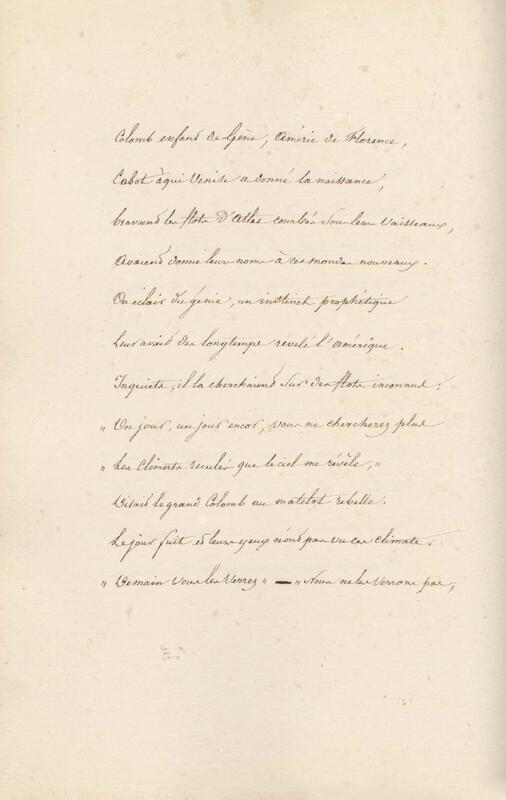 Colomb enfant de Gêne, Améric de Florence,
Cabot à qui Venise a donné la naissance,
bravant les flots d'Atlas courbés sous leurs vaisseaux,
avaient donné leurs noms à ces mondes nouveaux.
Un éclair du génie, un instinct prophétique
leur avait dès longtemps révélé l'amérique.
Inquiets, il la cherchaient sur des flots inconnus :
„ Un jour, un jour encor, vous ne chercherez plus
„ Les climats reculés que le ciel me révèle, „
disait le grand Colomb au matelot rebelle.
Le jour fuit et leurs yeux n'ont pas vu ces climats.
„ Demain vous les verrez „ — „ Nous ne les verrons pas,